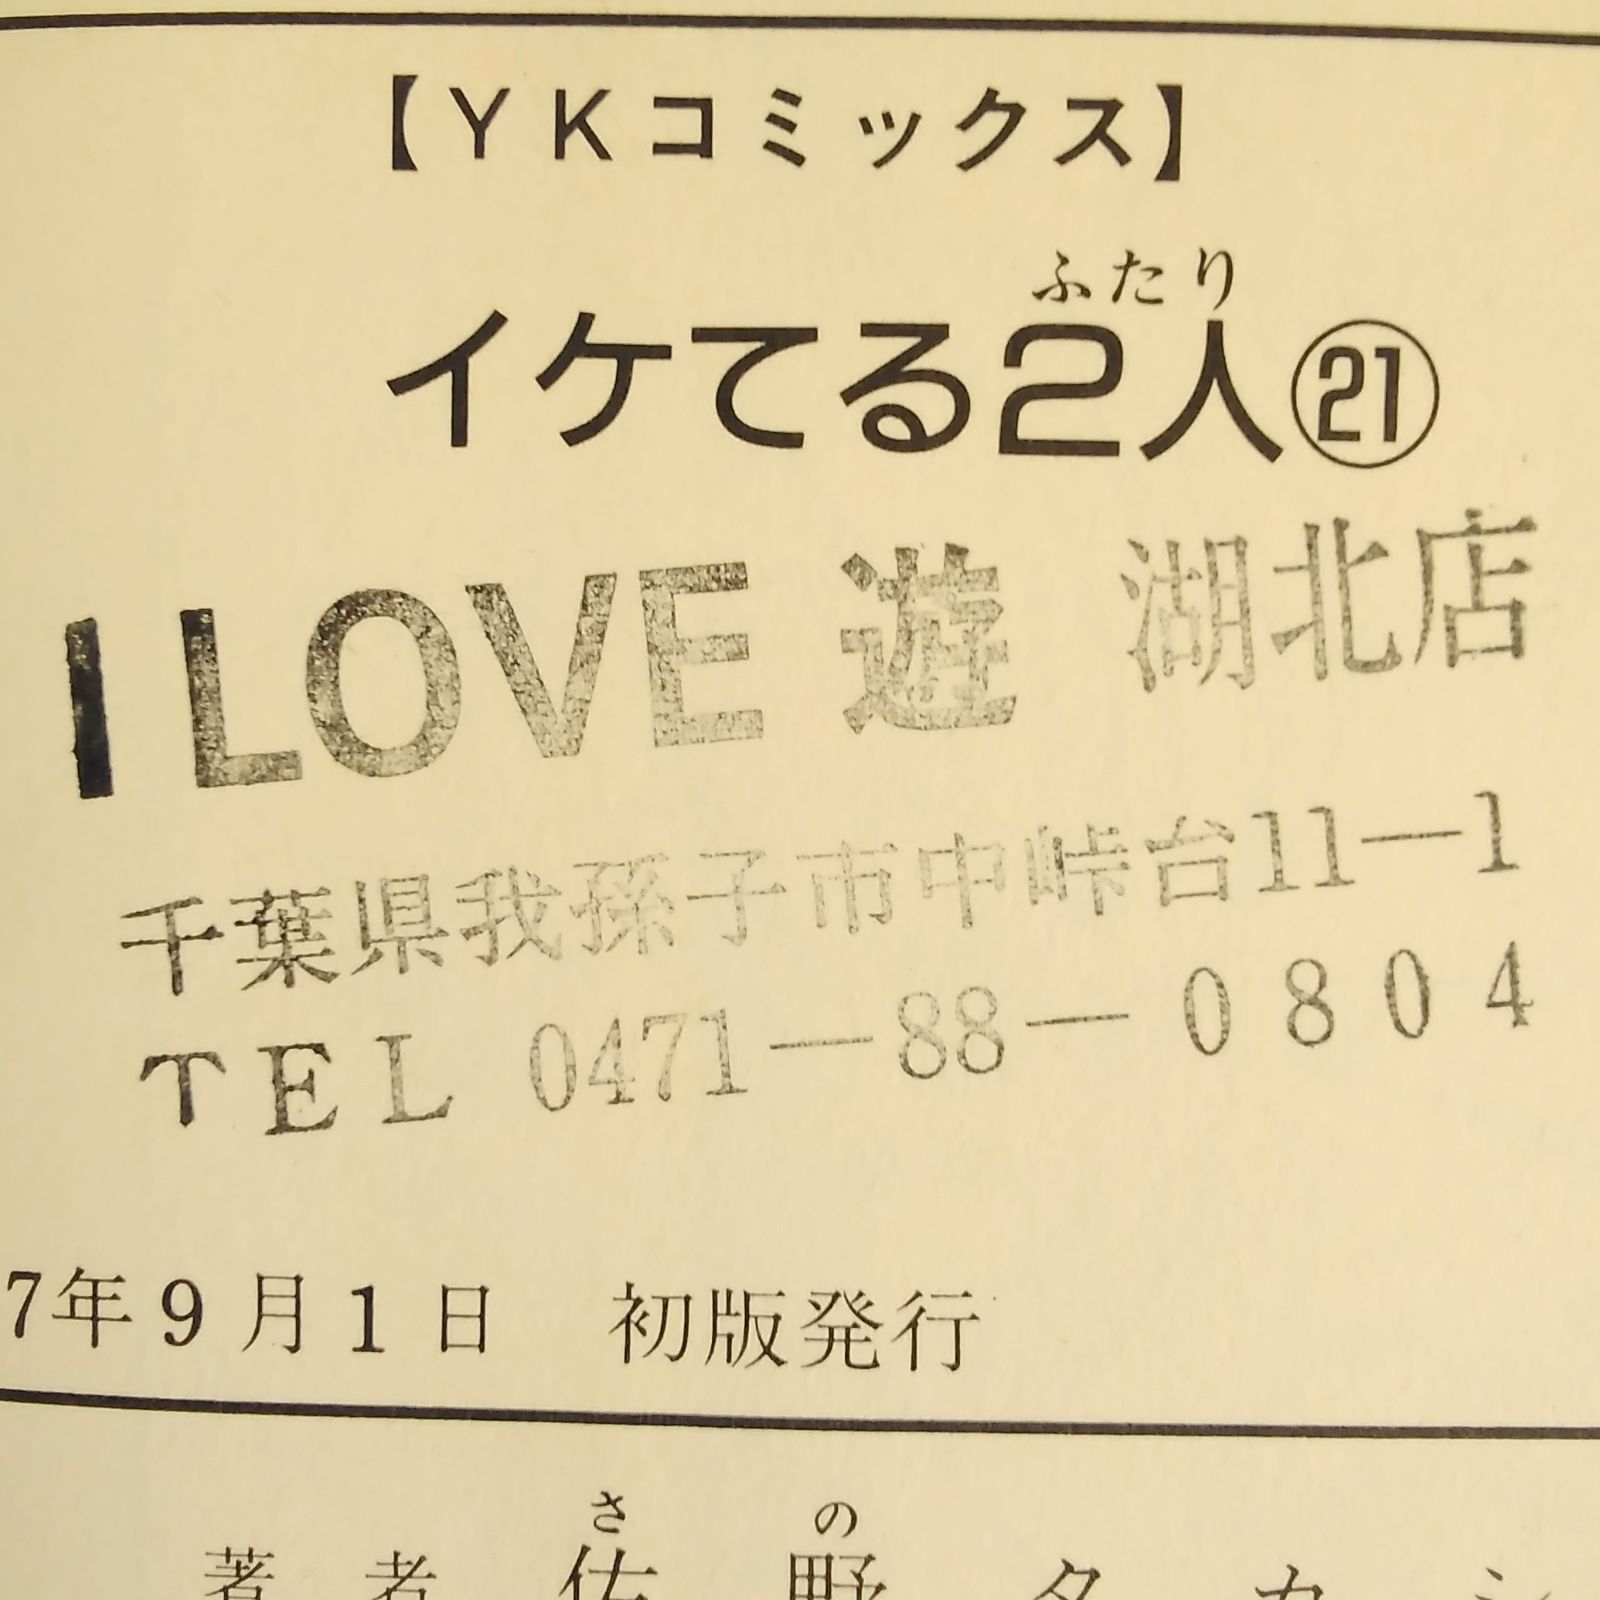 【YKコミックス】
ふたり
イケてる2人㉑
I LOVE 遊 湖北店
千葉県我孫子市中峠台11―1
TEL 0471―88―0804
7年9月1日 初版発行
さ の
著者 佐野タカシ